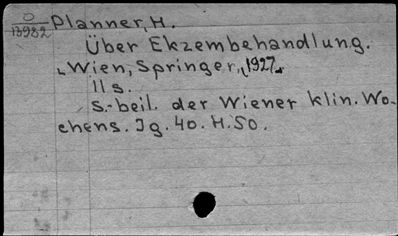 O Planner, H.
13982
Über Ekzembehandlung.
Wien, Springer, 1927.
11 s.
S.-beil. der Wiener klin. Wo-
chens. Jg. 40. H. 50.